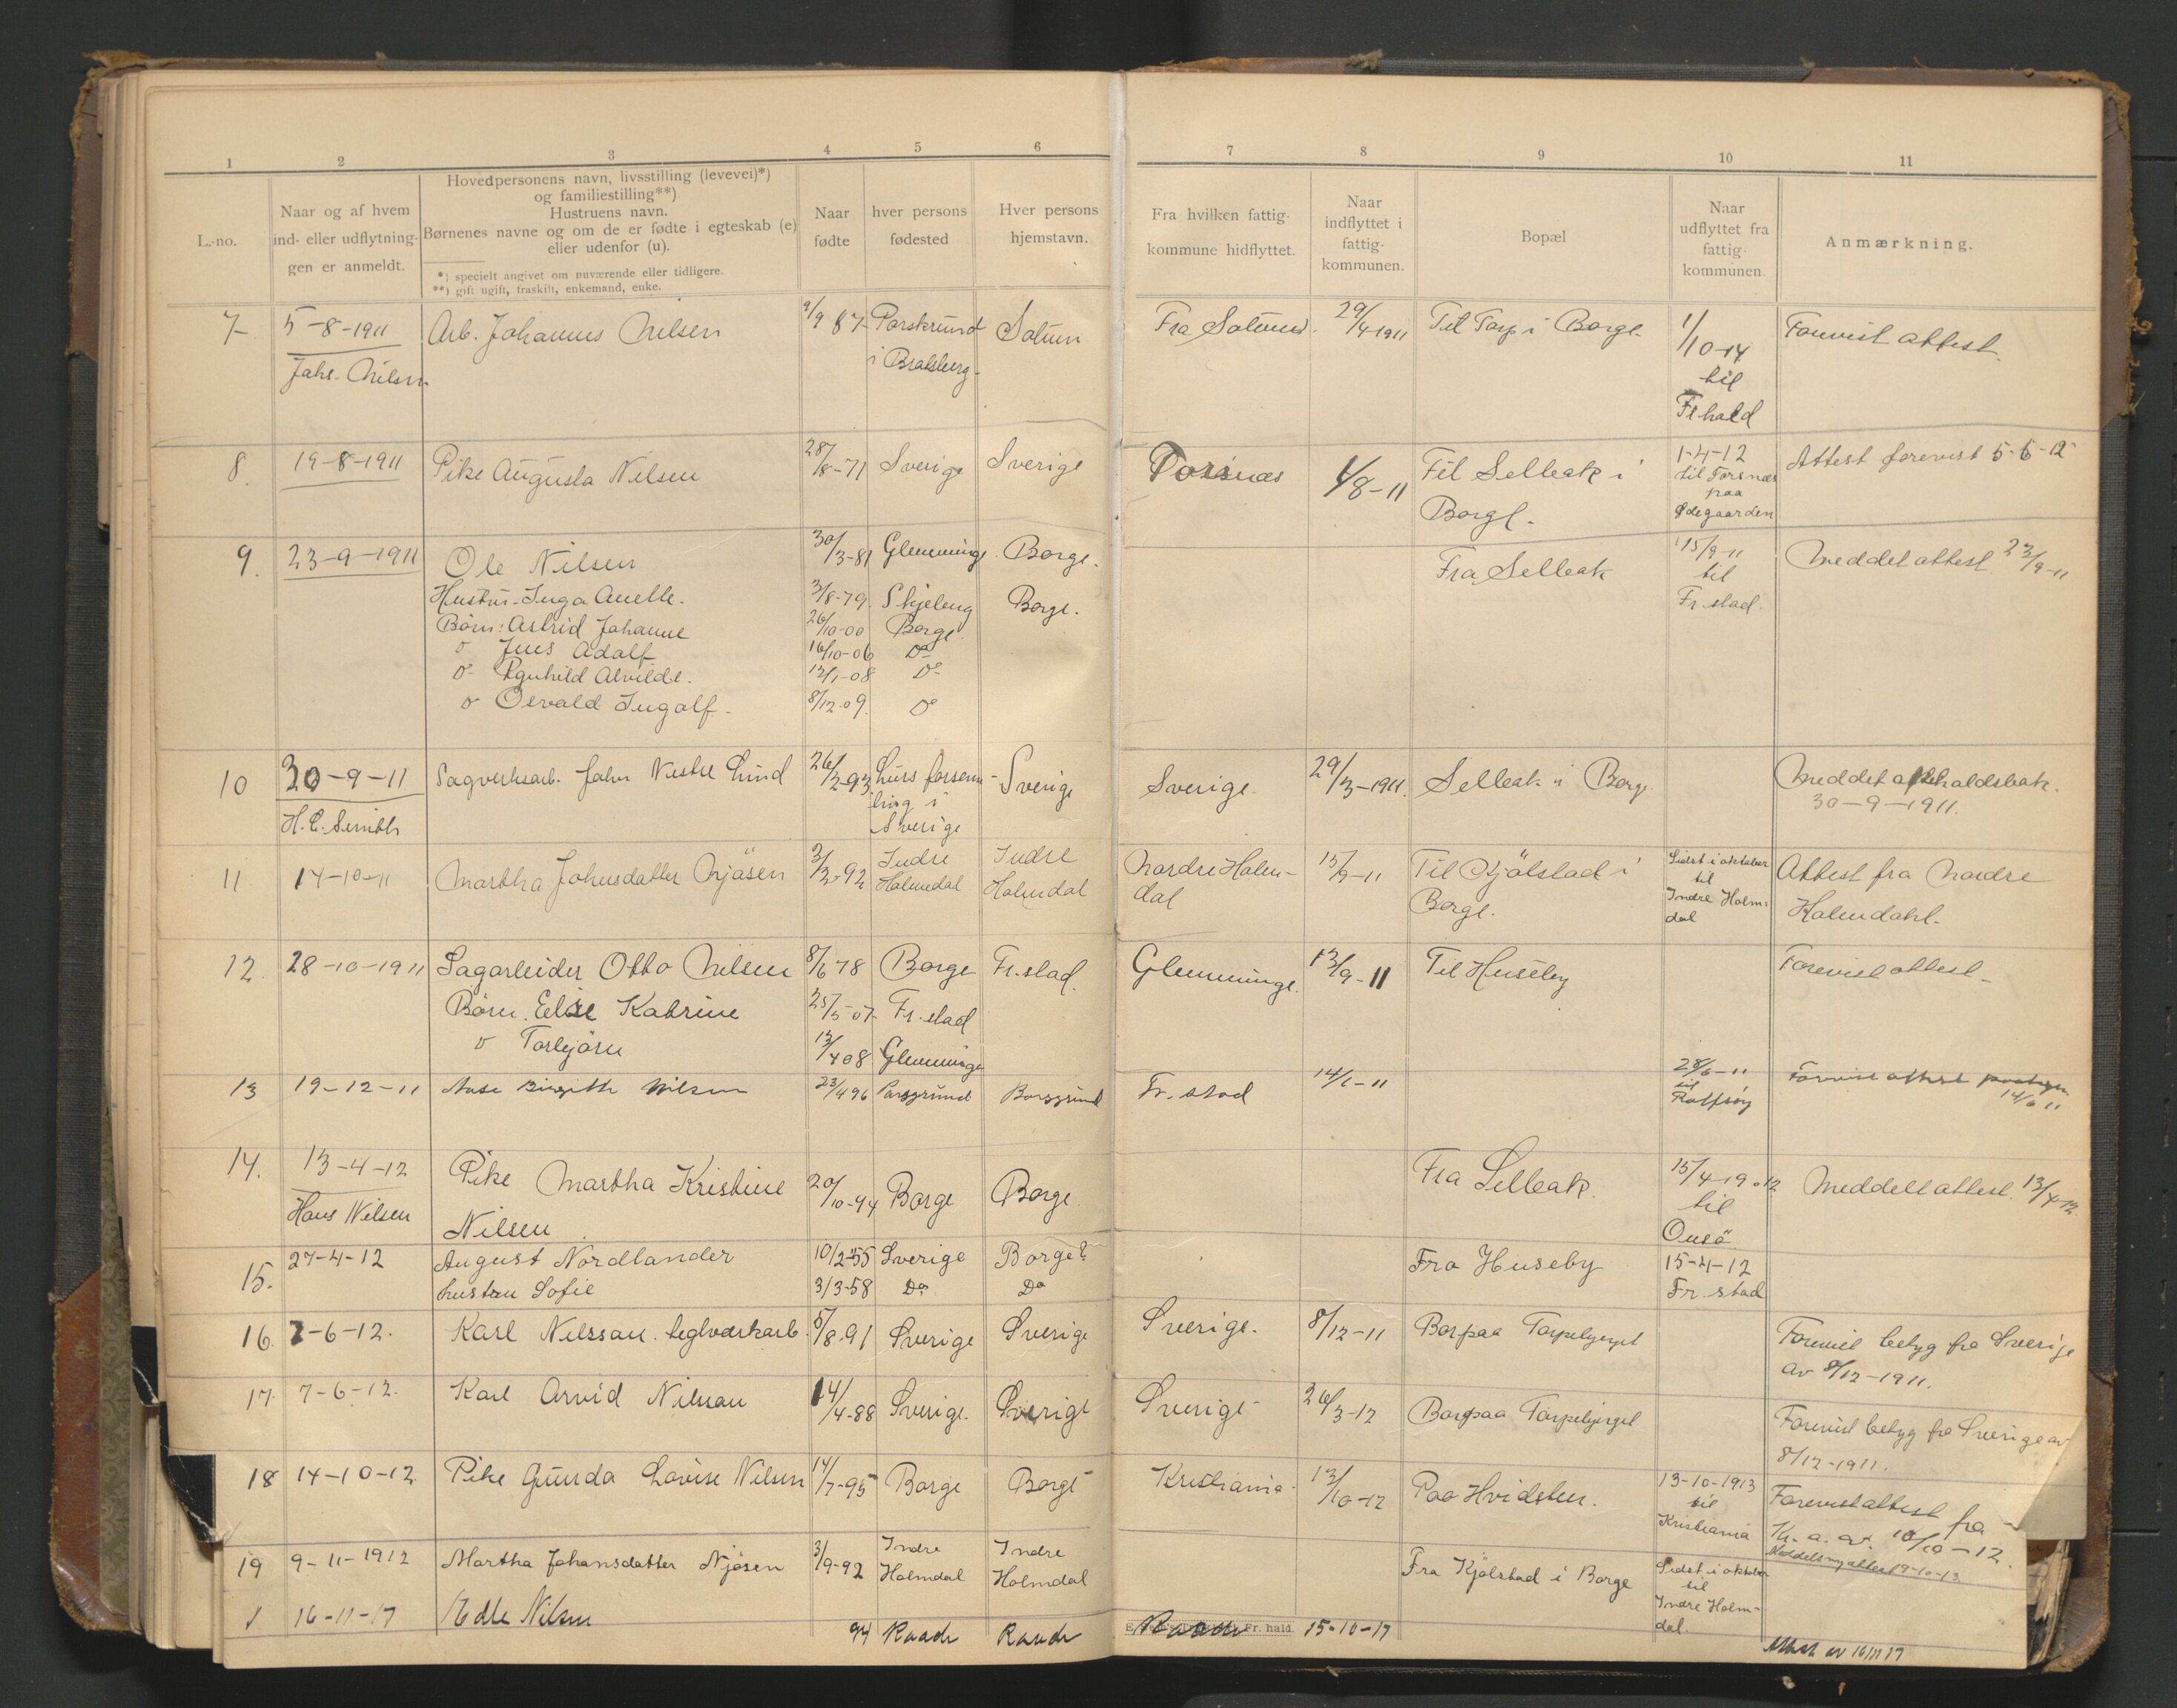 1 2 3 4 5 6 7 8 9 10 11
L.-no.
Naar og af hvem
ind- eller udflytnin-
gen er anmeldt.
Hovedpersonens navn, livsstilling (levevei)*)
og familiestilling**)
Hustruens navn.
Børnenes navne og om de er fødte i egteskab (e)
eller udenfor (u).
*) specielt angivet om nuværende eller tidligere.
**) gift ugift, fraskilt, enkemand, enke.
Naar
fødte
hver persons
fødested
Hver persons
hjemstavn.
Fra hvilken fattig-
kommune hidflyttet.
Naar
indflyttet i
fattig-
kommunen.
Bopæl
Naar
udflyttet fra
fattig-
kommunen.
Anmærkning.
7 5-8-1911 Arb. Johannes Nilsen 9/9 87 Porskrund Solum Fra Solum 29/4-1911 Til Torp i Borge 1/10-14 Forevist attest.
Johs. Nilsen i Bratsberg til
Fr.hald
8. 19-8-1911 Pike Augusta Nilsen 28/8-71 Sverige Sverige Torsnæs 1/8-11 Til Selbak i 1-4-12 Attest forevist 5-6-12
Borge. til Torsnæs
paa
Ødegaarden
9. 23-9-1911 Ole Nilsen 30/3-81 Glemminge Borge. Fra Selbak 15/9-11 Meddel attest 23/9-11
til
Fr.stad.
Hustru Inga Anette. 3/8-79 Skjeberg Borge.
Børn: Astrid Johanne 26/10-00 Borge.
do Jens Adolf 16/10-06 Do
do Ragnhild Alvilde. 12/1-08 Do
do Osvald Ingolf. 8/12-09. Do
10 30-9-11 Sagverksarb. John Nestel Lind 26/2-93 Lurs forsam- Sverige Sverige. 29/3-1911. Selbak i Borge Meddel opholdsbok.
H. C. Smith ling i 30-9-1911.
Sverige
11 14-10-11 Martha Johnsdatter Njøsen 3/9-92 Indre Indre Nordre Holm- 15/9-11 Til Kjølstad i Sidst i oktober Attest fra Nordre
Holmedal Holmdal dal Borge. til Holmdahl.
Indre Holm-
dal
12. 28-10-1911 Sagarbeider Otto Nilsen 8/6 78 Borge Fr.stad. Glemminge. 13/9-11 Til Huseby Forevist attest
Børn. Else Katrine 25/5-07 Fr.stad
do Torbjørn 13/4 08 Glemminge
13 19-12-11 Aase Birgitte Nilsen 23/4 96 Porsgrund Porsgrund Fr.stad 14/6-11 28/6-11 Forevist attest
til 14/6 11
Rolfsøy
14. 13-4-12 Pike Martha Kristine 20/10-94 Borge Borge Fra Selbak. 15/4-1912 Meddelt attest. 13/4-12.
Hans Nilsen Nilsen til
Onsø
15. 27-4-12 August Nordlander 10/2-55 Sverige Borge? Fra Huseby 15-4-12
hustru Sofie 3/3-58 Do Do Fr.stad
16. 7-6-12. Karl Nilssan. teglverkarb. 5/8-91 Sverige Sverige Sverige. 8/12-11 Bor paa Torpebjerget Forevist betyg fra Sverige
av 8/12-1911.
17. 7-6-12. Karl Arvid Nilssan 14/4-88 Sverige. Sverige Sverige 26/3-12 Bor paa Torpebjerget Forevist betyg fra Sverige av
8/12-1911.
18 14-10-12. Pike Gunda Lovise Nilsen 14/7-95 Borge Borge Kristiania 13/10-12 Paa Hvidsten. 13-10-1913 Forevist attest fra
til Kr.a. av. 10/10-12.
Kristiania
19 9-11-1912 Martha Johansdatter Njøsen 3/9-92 Indre Indre Fra Kjølstad i Borge Sidst i oktober
Holmdal Holmdal til
Indre Holm-
dal.
16-11-17 Edle Nilsen 94 Raade Raade Raade Fr. hald. 15-10-17 Attest av 16/11 17